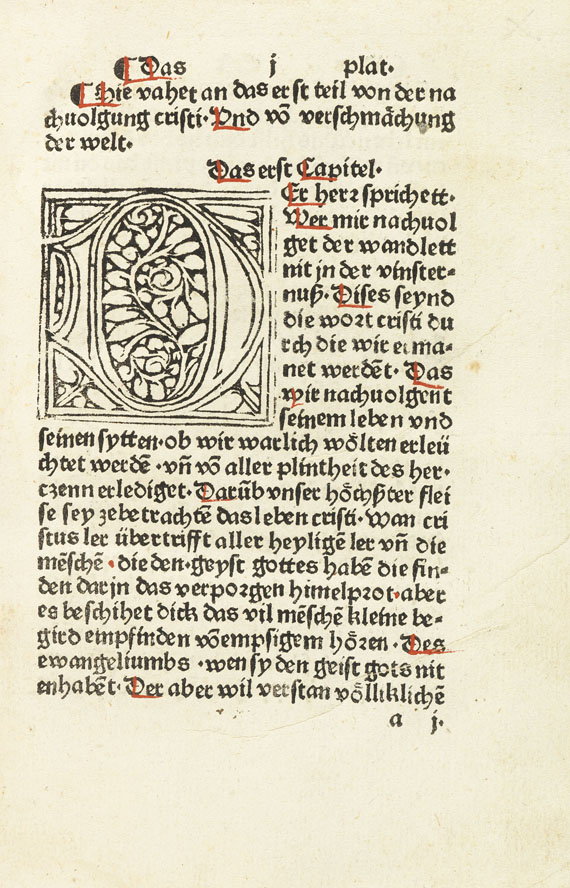 ¶ Das j plat·
¶ Hie vahet an das erst teil von der na
chuolgung cristi· Vnd vō verschmåchung
der welt·
Das erst Capitel·
Er herr sprichett·
Wer mir nachuol
get der wandlett
nit jn der vinster⸗
nuß· Dises seynd
die wort cristi du
rch die wir erma⸗
net werdēt· Das
wir nachuolgent
seinem leben vnd
seinen sytten· ob wir warlich wőlten erleü
chtet werdē · vn̄ vō aller plintheit des her⸗
czenn erlediget· Darūb vnser hőchster flei
se sey zebetrachtē das leben cristi· Wan cri
stus ler übertrifft aller heyligē ler vn̄ die
mēschē · die den· geyst gottes habē die fin⸗
den dar jn das verporgen himelprot· aber
es beschihet dick das vil mēschē kleine be⸗
gird empfinden vō empsigem hőren · Des
ewangeliumbs · wen sy den geist gots nit
enhabēt· Der aber wil verstan vőlliklichē
a j·